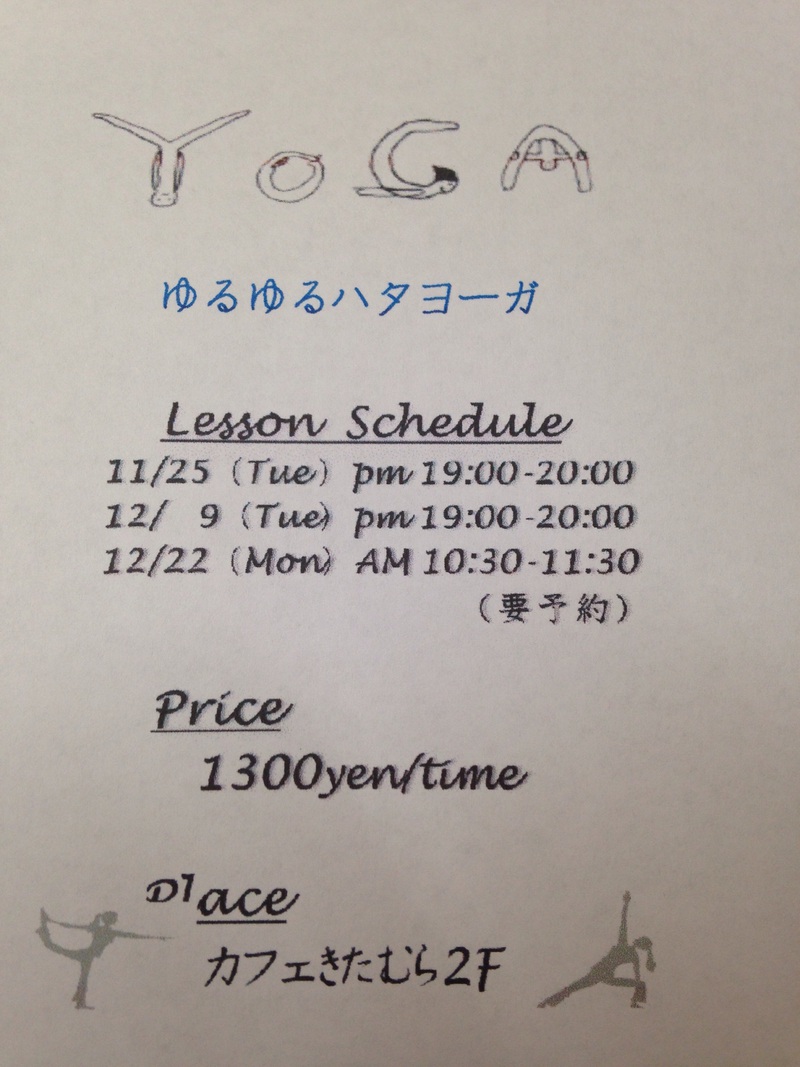 YOGA
ゆるゆるハタヨーガ
Lesson Schedule
11/25（Tue）pm 19:00-20:00
12/ 9（Tue）pm 19:00-20:00
12/22（Mon）AM 10:30-11:30
（要予約）
Price
1300yen/time
Place
カフェきたむら2F